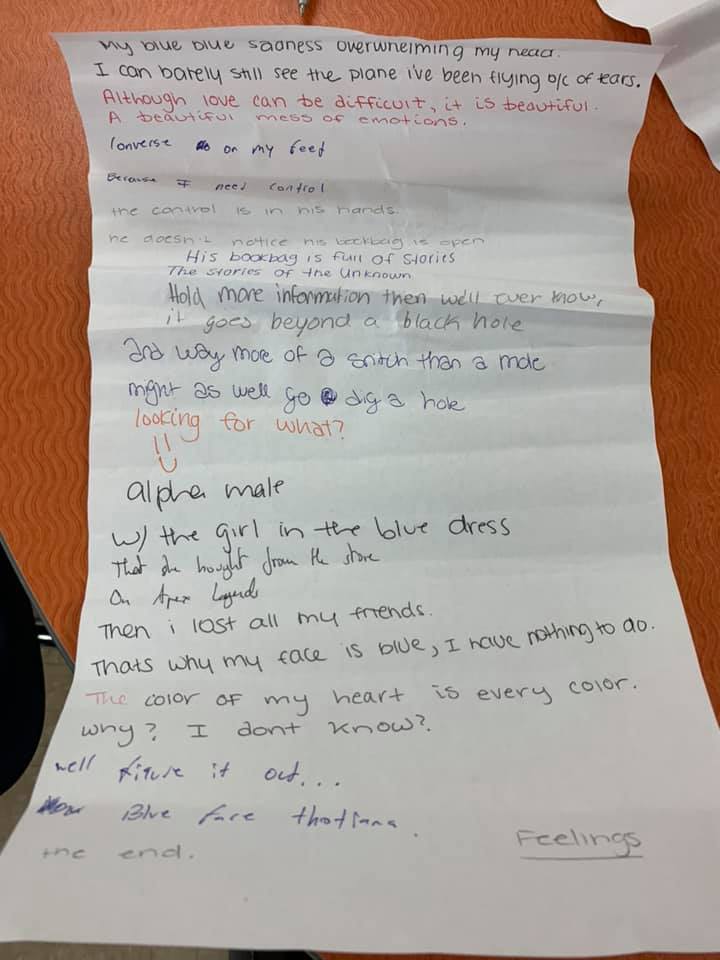 My blue blue sadness overwhelming my head.
I can barely still see the plane i've been flying b/c of tears.
Although love can be difficult, it is beautiful.
A beautiful mess of emotions.
Converse on my feet
Because I need control
the control is in his hands.
he doesn't notice his bookbag is open
His bookbag is full of stories
The stories of the Unknown
Hold more information then we'll ever know,
it goes beyond a black hole
and way more of a snitch than a mole
might as well go dig a hole
looking for what?
alpha male
w/ the girl in the blue dress
That she bought from the store
On Apex Legends
Then i lost all my friends.
Thats why my face is blue, I have nothing to do.
The color of my heart is every color.
why? I dont know?.
well figure it out...
Blue face thotiana.
the end.
Feelings